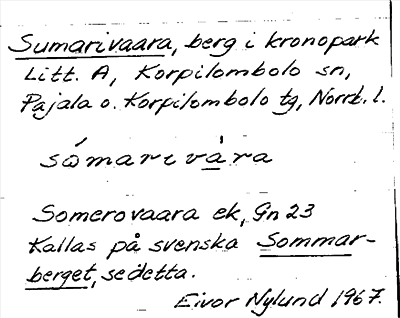 Sumarivaara, berg i kronopark
Litt. A, Korpilombolo sn,
Pajala o. Korpilombolo tg, Norrb. l.
sómarivàra
Somerovaara ek, Gn 23
Kallas på svenska Sommar-
berget, se detta.
Eivor Nylund 1967.